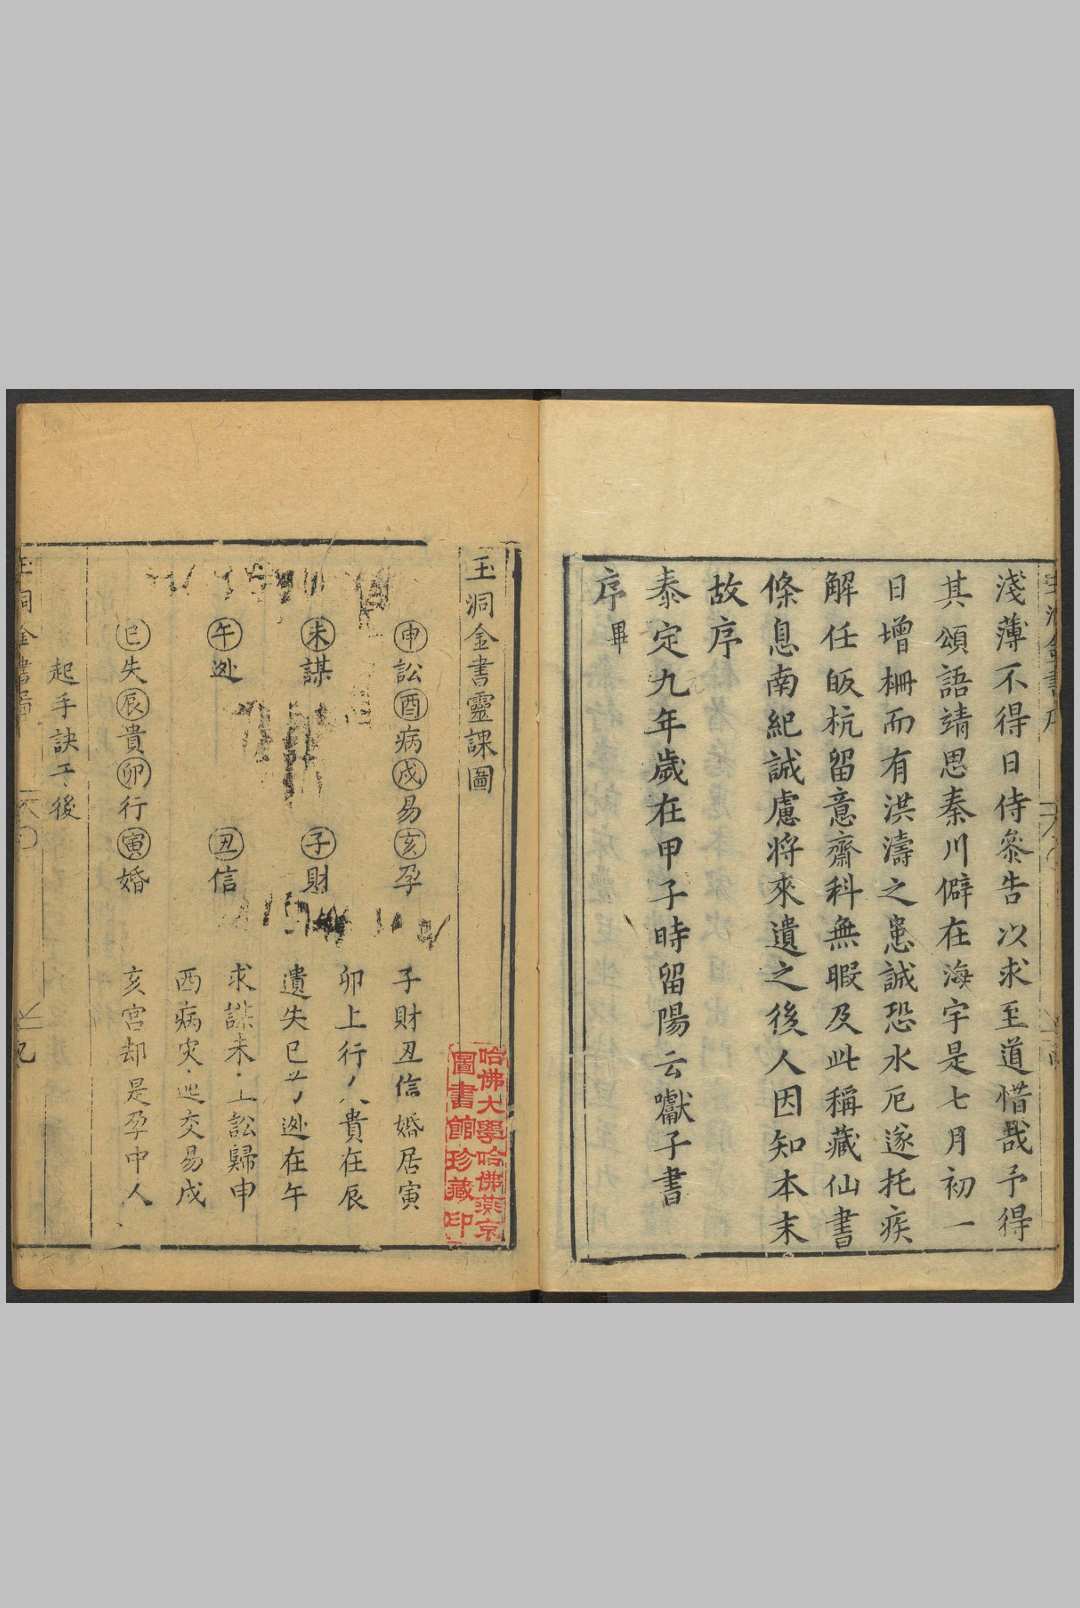 淺薄不得日侍叅告以求至道惜哉予得
其頌語靖思秦川僻在海宇是七月初一
日增柵而有洪濤之患誠恐水厄遂托疾
解任皈杭留意齋科無暇及此稱藏仙書
條息南紀誠慮將來遺之後人因知本末
故序
泰定九年歲在甲子時留陽云巘子書
序畢
玉洞金書靈課圖
申訟酉病戌易亥孕
未謀
子財
午逊
丑信
巳失辰貴卯行寅婚
子財丑信婚居寅
卯上行人貴在辰
遺失巳 逊在午
求謀未上訟歸申
酉病灾逆交易戌
亥宮却是孕中人
起手訣于後
哈佛大學哈佛燕京
圖書館珍藏印